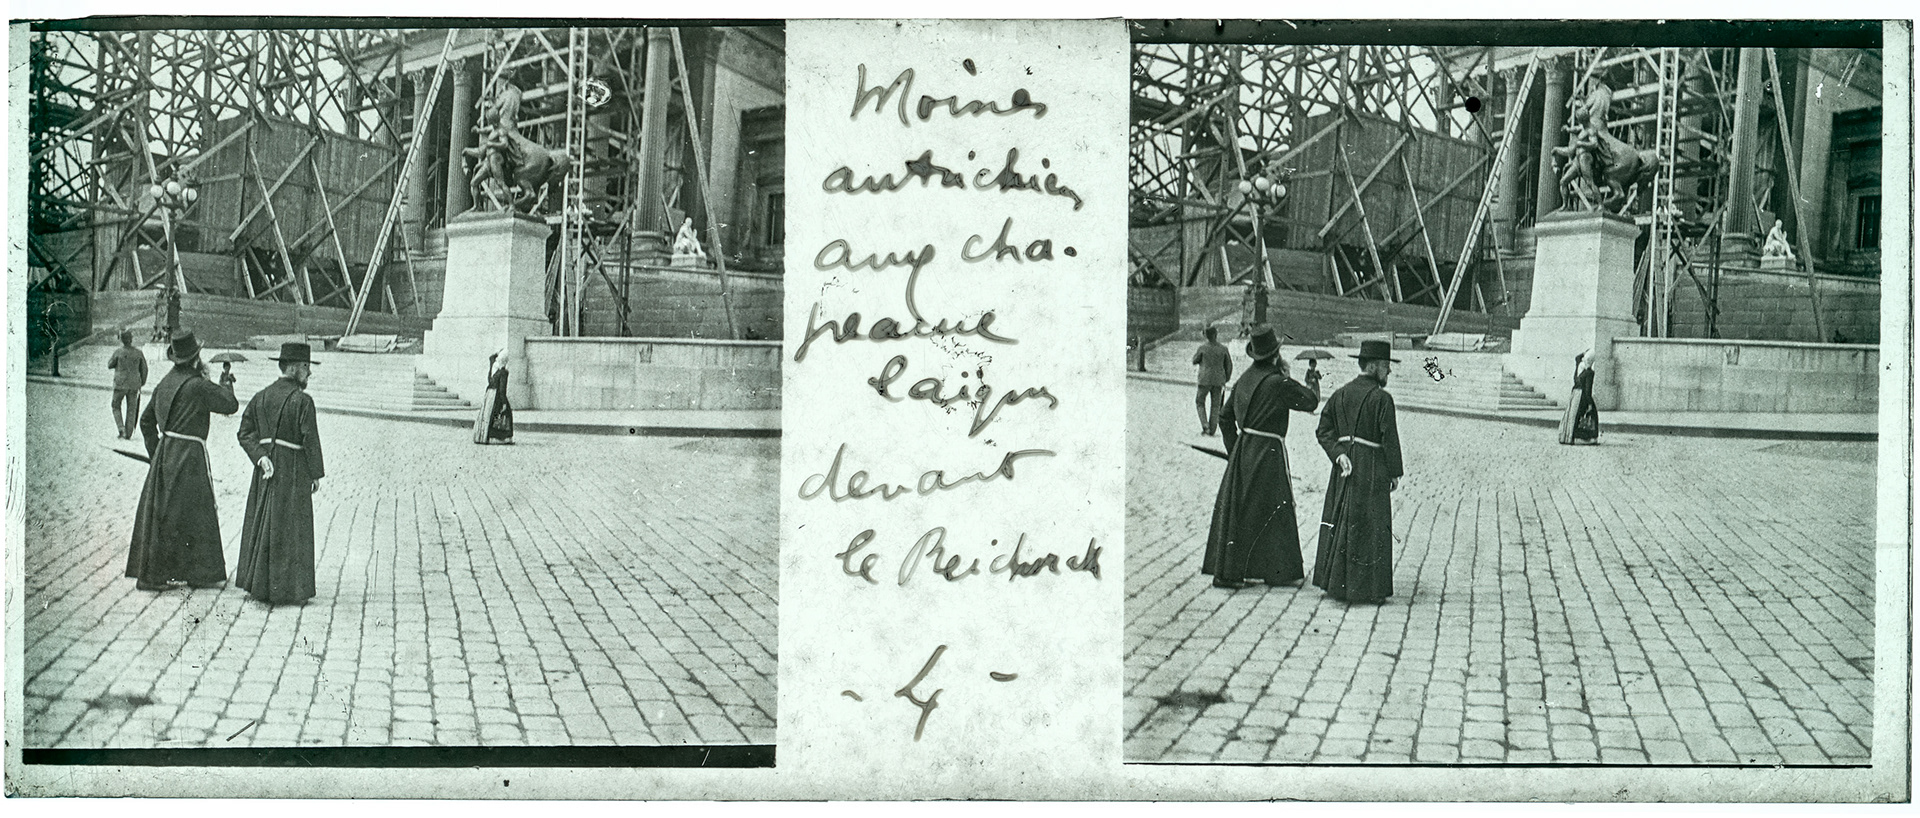 Moines
autrichiens
aux cha-
peaux
laïques
devant
le Reichsrath
- 4 -